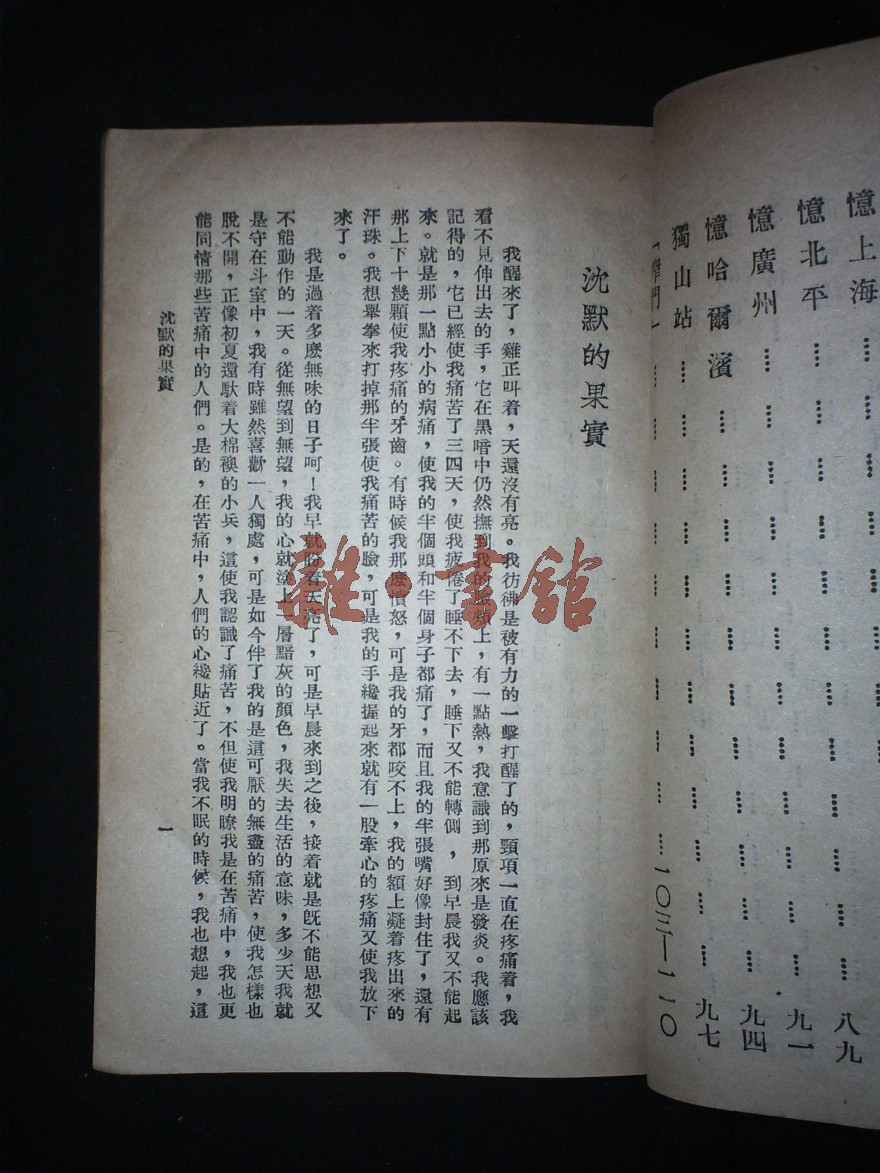 憶上海⋯⋯⋯⋯八九
憶北平⋯⋯⋯⋯九一
憶廣州⋯⋯⋯⋯九四
憶哈爾濱⋯⋯⋯⋯九七
獨山站
⋯⋯⋯⋯一〇三—一一〇
沈默的果實
我醒來了，雞正叫着，天還沒有亮。我彷彿是被有力的一擊打醒了的，頸項一直在疼痛着，我
看不見伸出去的手，它在黑暗中仍然撫到我的臉頰上，有一點熱，我意識到那原來是發炎。我應該
記得的，它已經使我痛苦了三四天，使我疲倦了睡不下去，睡下又不能轉側，到早晨我又不能起
來。就是那一點小小的病痛，使我的半個頭和半個身子都痛了，而且我的半張嘴好像封住了，還有
那上下十幾顆使我疼痛的牙齒。有時候我那麽憤怒，可是我的牙都咬不上，我的額上凝着疼出來的
汗珠。我想舉拳來打掉那半張使我痛苦的臉，可是我的手纔握起來就有一股牽心的疼痛又使我放下
來了。
我是過着多麽無味的日子呵！我早就盼着天亮了，可是早晨來到之後，接着就是旣不能思想又
不能動作的一天。從無望到無望，我的心就塗上一層黯灰的顏色，我失去生活的意味，多少天我就
是守在斗室中，我有時雖然喜歡一人獨處，可是如今伴了我的是這可厭的無盡的痛苦，使我怎樣也
脫不開，正像初夏還馱着大棉襖的小兵，這使我認識了痛苦，不但使我明瞭我是在苦痛中，我也更
能同情那些苦痛中的人們。是的，在苦痛中，人們的心纔貼近了。當我不眠的時候，我也想起，這
沈默的果實
一
雜·書館